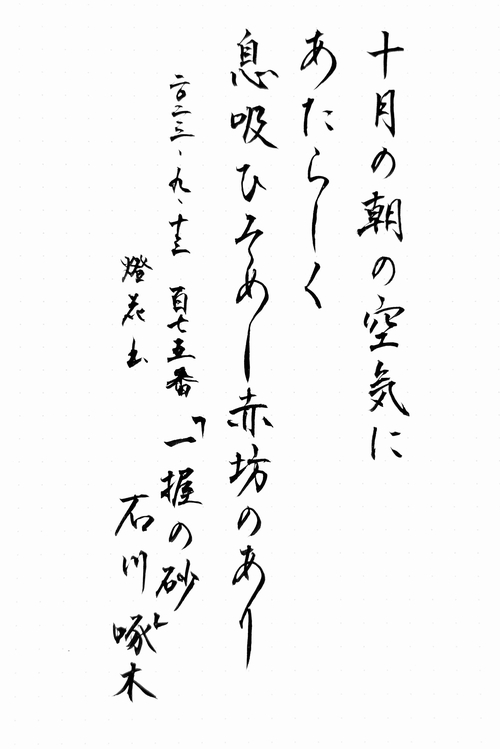 十月の朝の空気に
あたらしく
息吸ひそめし赤坊のあり
二〇二三、九、十三 百七五番 『一握の砂』
石川啄木